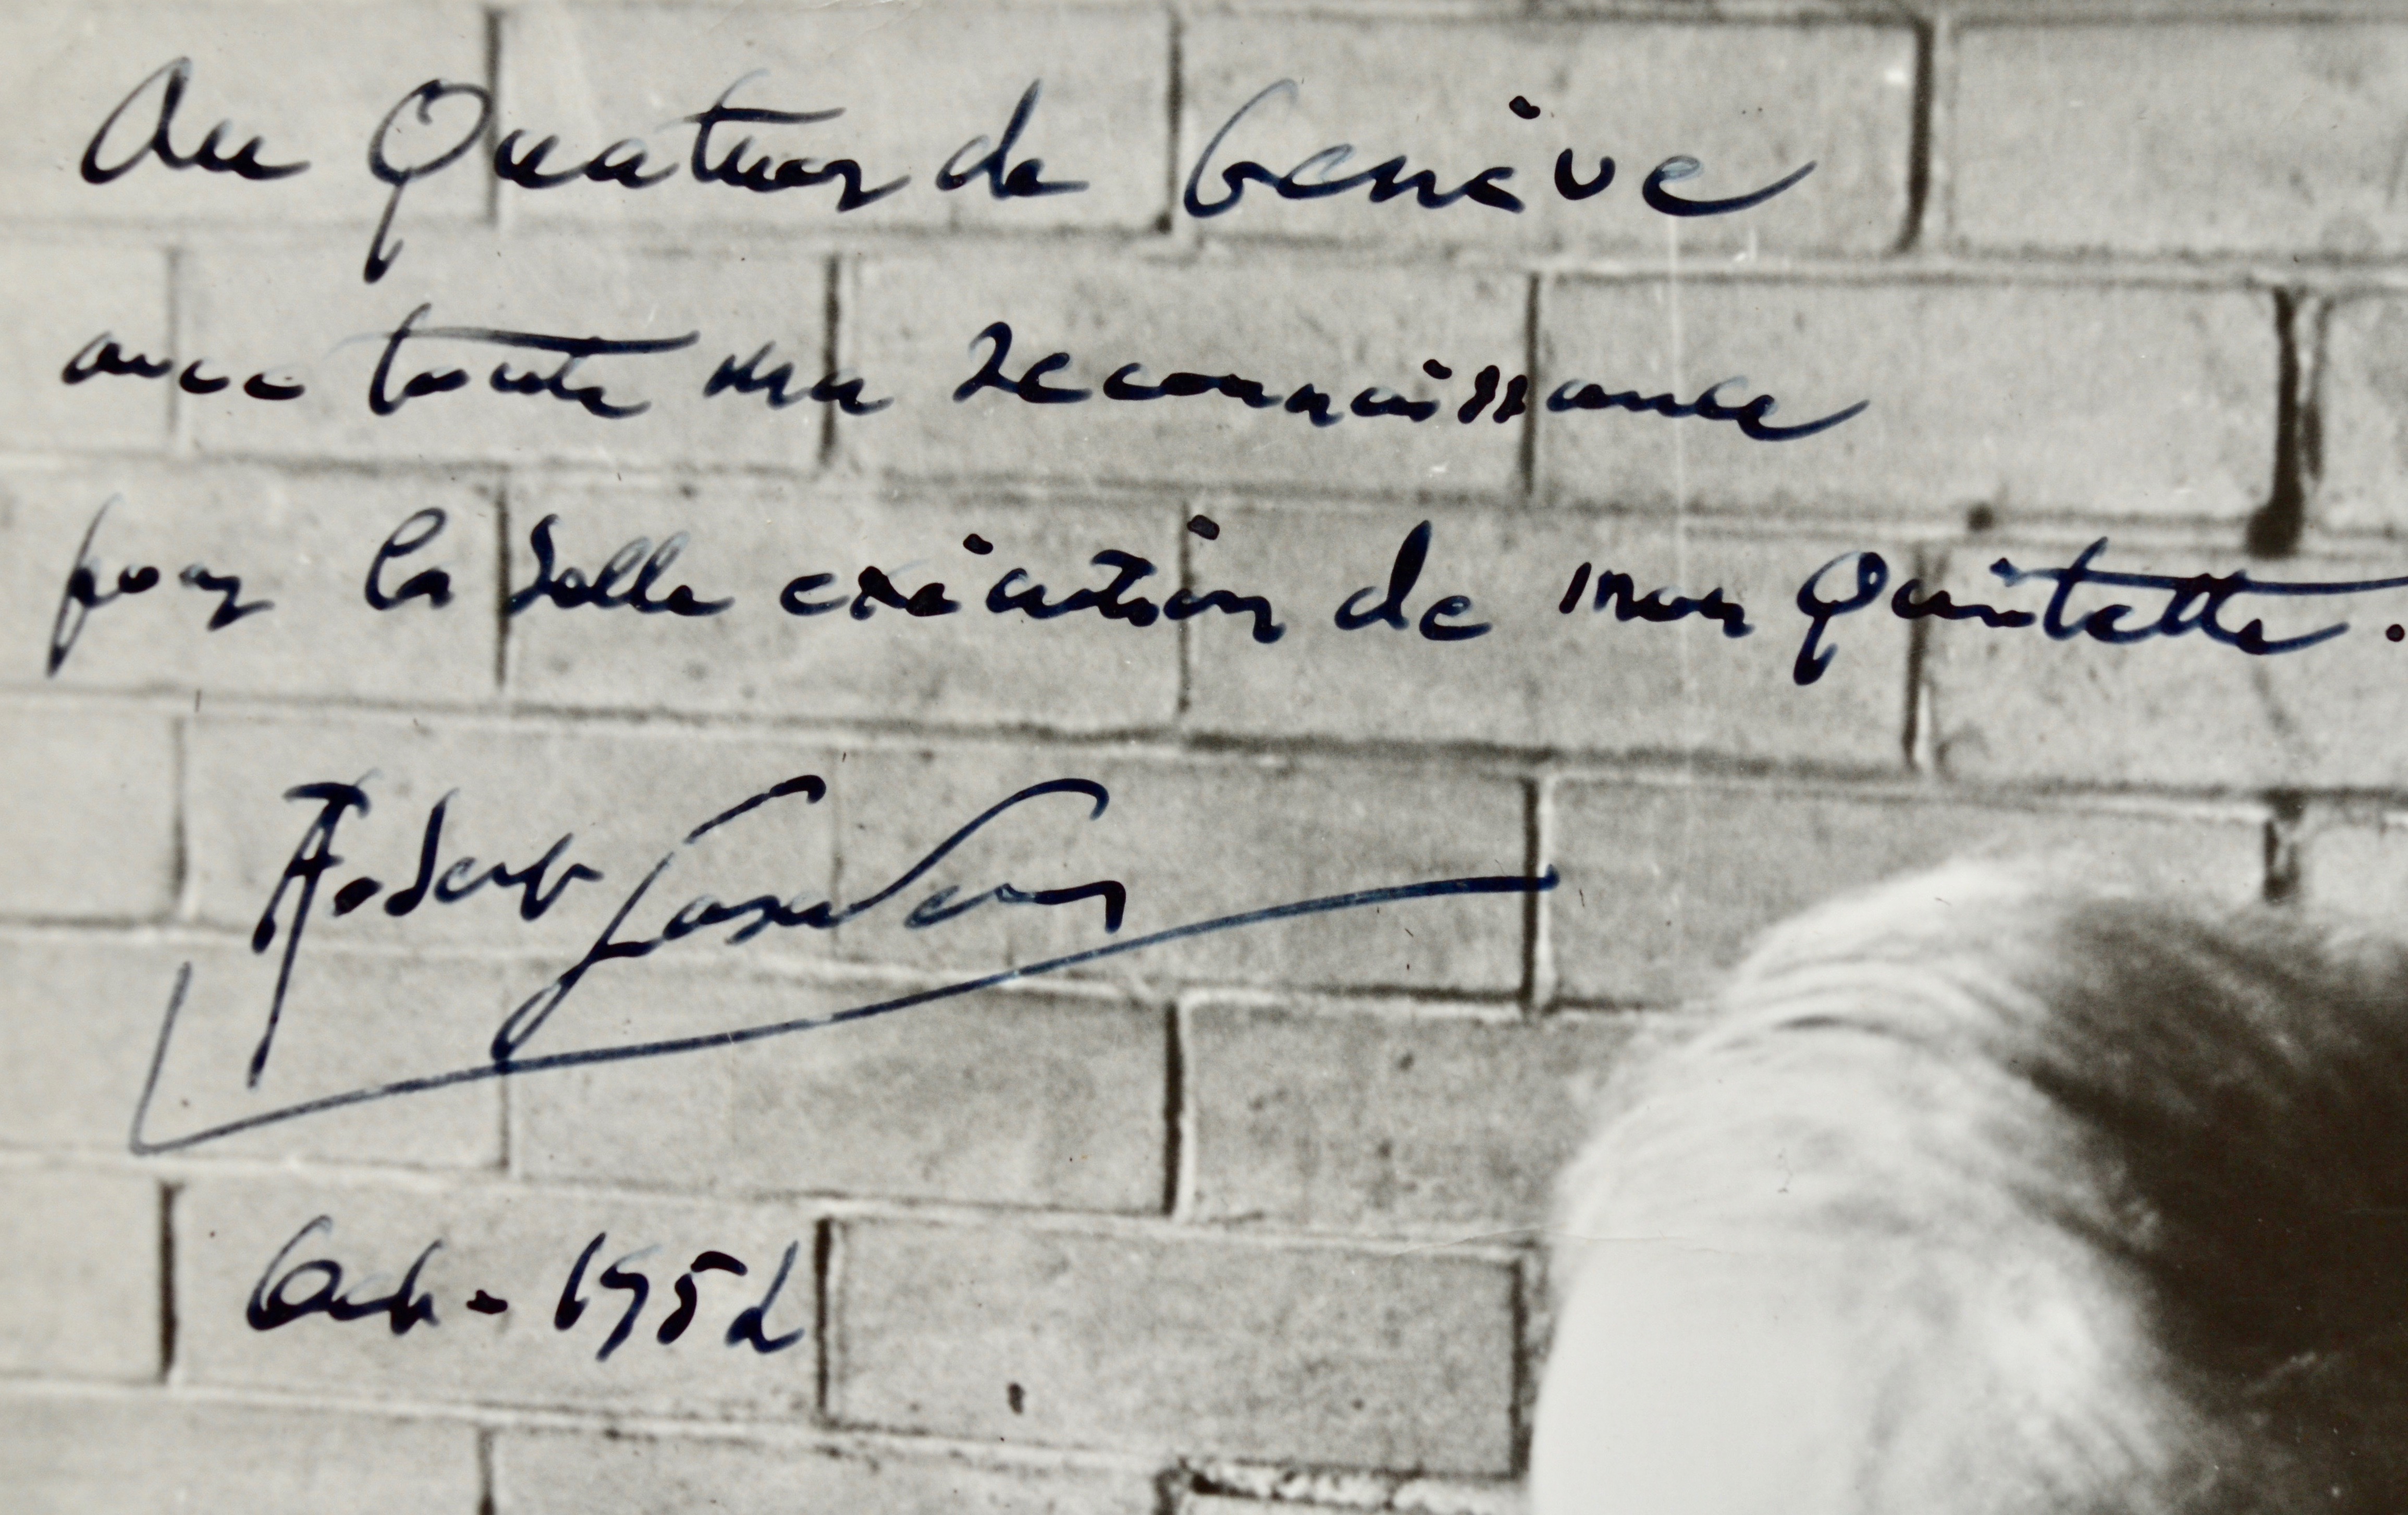 Au Quatuor de Genève
avec toute ma reconnaissance
pour la belle exécution de mon Quintette.
Robert Casadesus
Oct - 1952